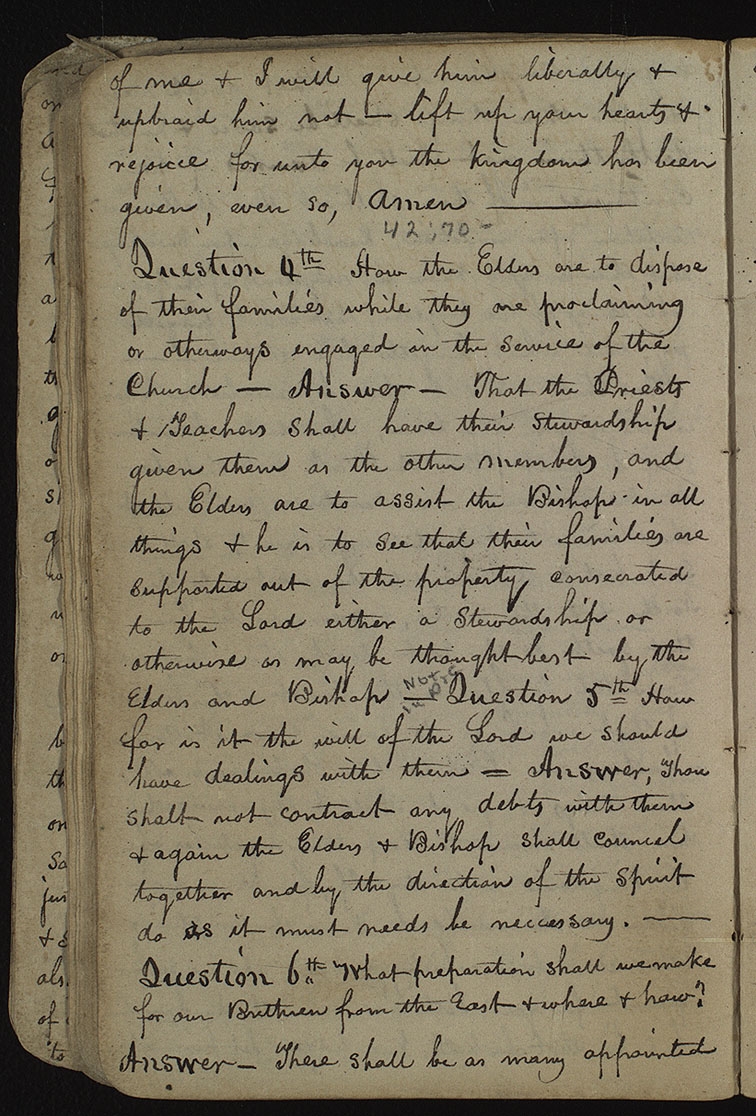 of me & I will give him liberally &
upbraid him not — lift up your hearts &
rejoice for unto you the kingdom has been
given, even so, Amen ———
42:70-
Question 4th How the Elders are to dispose
of their families while they are proclaiming
or otherways engaged in the service of the
Church — Answer — That the Priests
& Teachers shall have their stewardship
given them as the other members, and
the Elders are to assist the Bishop in all
things & he is to see that their families are
supported out of the property consecrated
to the Lord either a stewardship or
otherwise as may be thought best by the
Not
in
Elders and Bishop = Question 5th How
far is it the will of the Lord we should
have dealings with them = Answer, Thou
shalt not contract any debts with them
& again the Elders & Bishop shall councel
together and by the direction of the Spirit
do as it must needs be neccessary. ——
Question 6th What preparation shall we make
for our Brethren from the East & where & how?
Answer — There shall be as many appointed